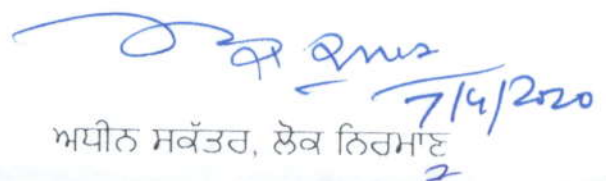 7/4/2020
ਅਧੀਨ ਸਕੱਤਰ, ਲੋਕ ਨਿਰਮਾਣ